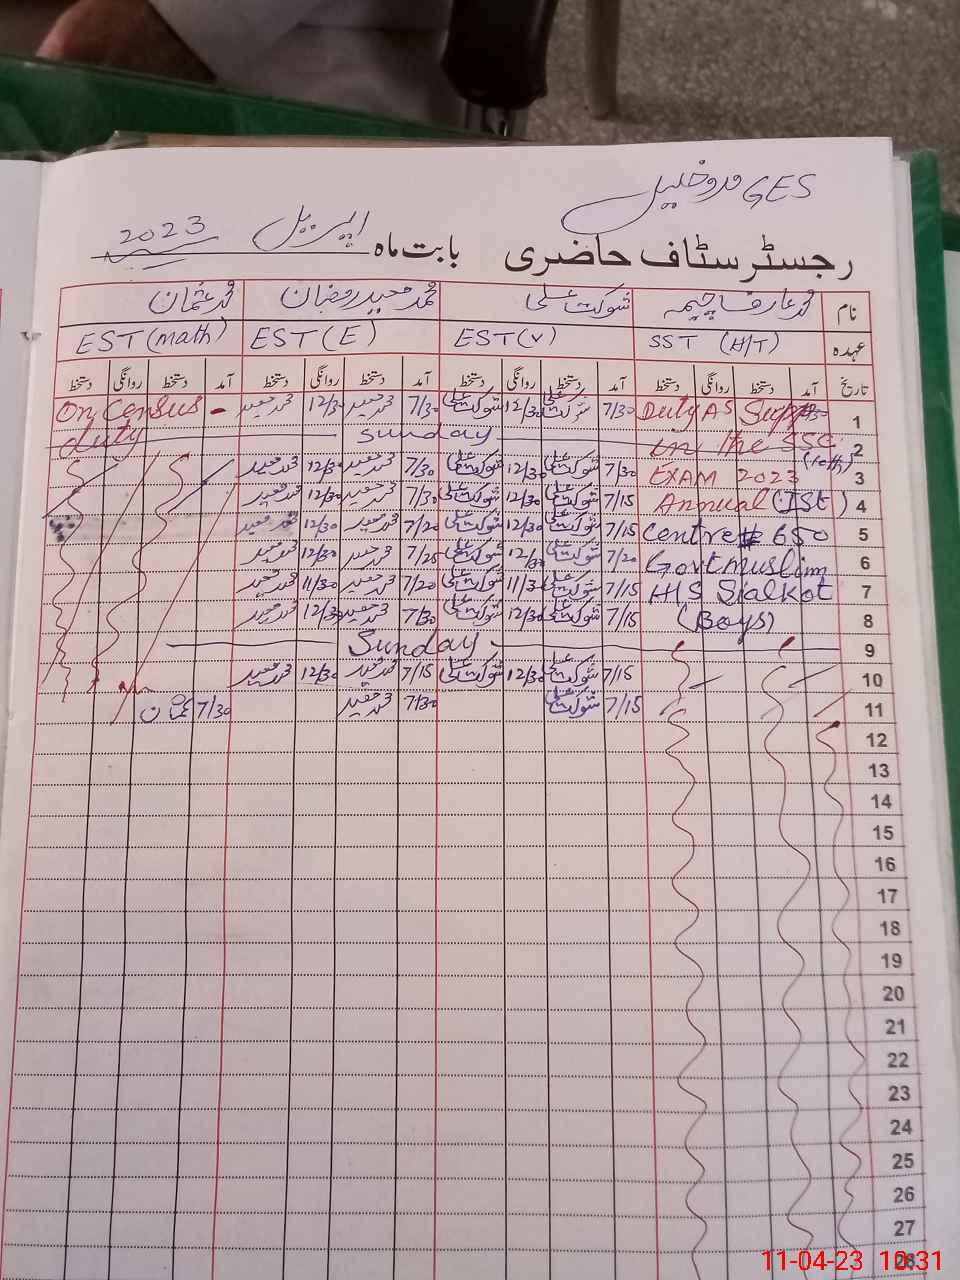 GES
رجسٹر سٹاف حاضری بابت ماہ اپریل 2023
نام محمد عارف چیمہ شوکت علی محمد سعید رمضان محمد عثمان
عہدہ SST (H/T) EST (V) EST (E) EST (math)
تاریخ آمد دستخط روانگی دستخط آمد دستخط روانگی دستخط آمد دستخط روانگی دستخط آمد دستخط روانگی دستخط
1 Duty As 7/30 شوکت علی 12/30 شوکت علی 7/30 محمد سعید 12/30 محمد سعید On Census -
2 on the SSC Sunday duty
3 (10th) EXAM 2023 7/30 شوکت علی 12/30 شوکت علی 7/30 محمد سعید 12/30 محمد سعید
4 Annual (Ist) 7/15 شوکت علی 12/30 شوکت علی 7/30 محمد سعید 12/30 محمد سعید
5 Centre # 650 7/15 شوکت علی 12/30 شوکت علی 7/20 محمد سعید 12/30 محمد سعید
6 Govt Muslim 7/20 شوکت علی 12/30 شوکت علی 7/25 محمد سعید 12/30 محمد سعید
7 H/S Sialkot 7/15 شوکت علی 11/30 شوکت علی 7/20 محمد سعید 11/30 محمد سعید
8 (Boys) 7/15 شوکت علی 12/30 شوکت علی 7/30 محمد سعید 12/30 محمد سعید
9 Sunday
10 7/15 شوکت علی 12/30 شوکت علی 7/15 محمد سعید 12/30 محمد سعید
11 7/15 شوکت علی 7/30 محمد سعید 7/30 عثمان
12
13
14
15
16
17
18
19
20
21
22
23
24
25
26
27
28
11-04-23 10:31